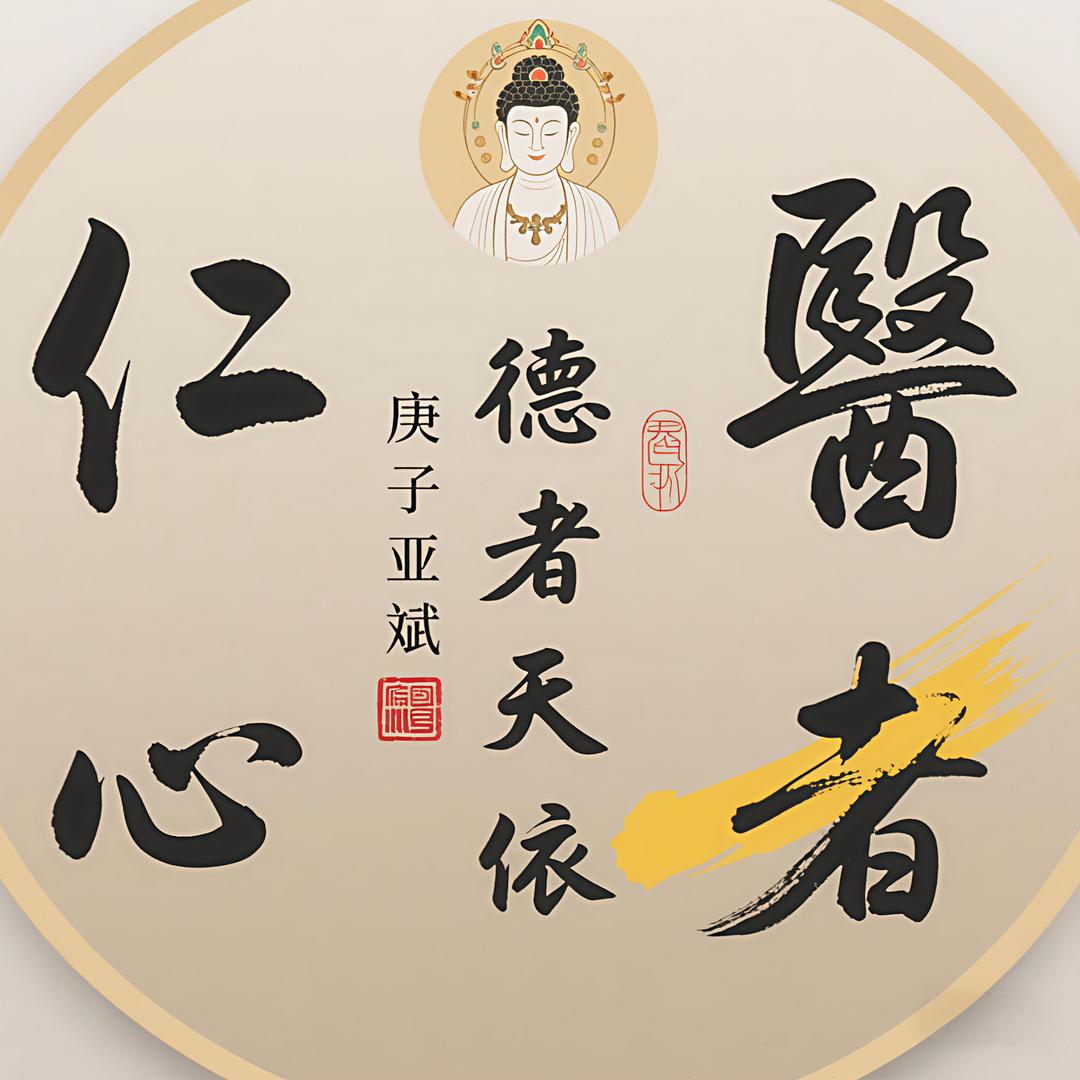 醫者
德者天依
庚子亚斌
仁心